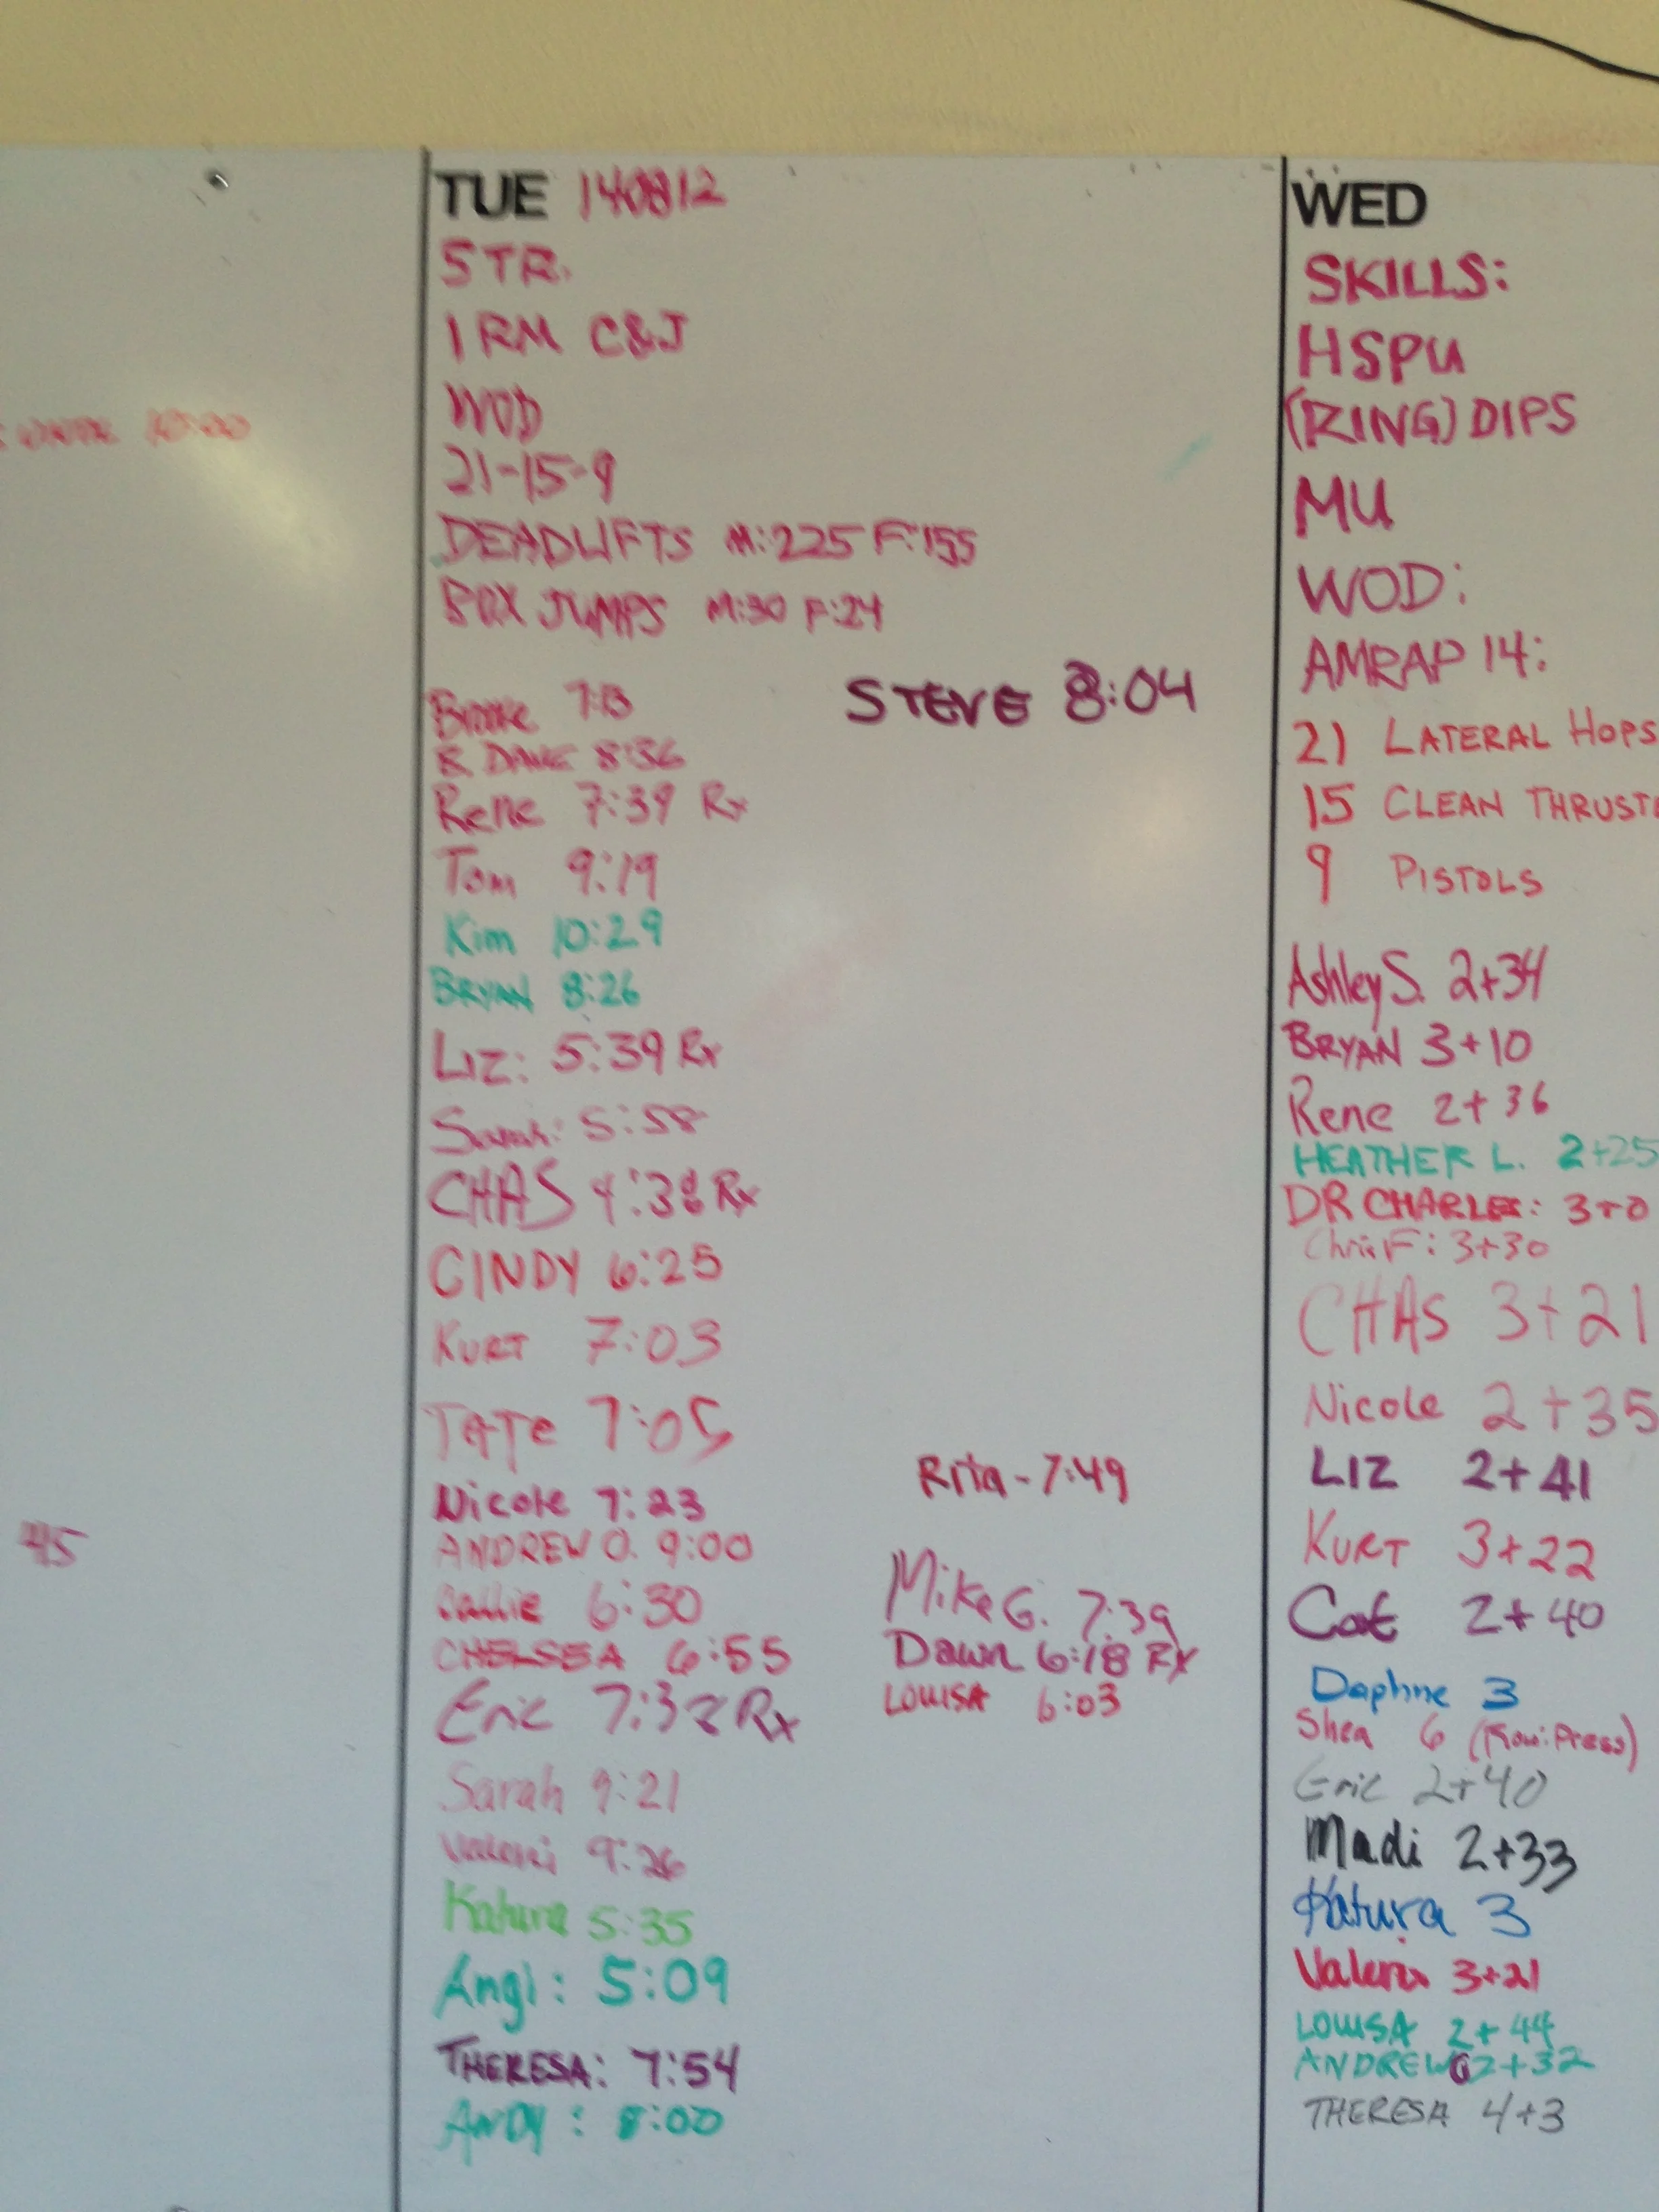 10:00
45
TUE 140812
STR.
1 RM C&J
WOD
21-15-9
DEADLIFTS M:225 F:155
BOX JUMPS M:30 F:24
Brooke 7:13
B. DAVE 8:36
Rene 7:39 Rx
Tom 9:19
Kim 10:29
BRYAN 8:26
LIZ: 5:39 Rx
Sarah: 5:58
CHAS 4:38 Rx
CINDY 6:25
KURT 7:03
TATE 7:05
Nicole 7:23
ANDREW O. 9:00
Callie 6:30
CHELSEA 6:55
Eric 7:32 Rx
Sarah 9:21
Valeri 9:26
Katura 5:35
Angi: 5:09
THERESA: 7:54
ANDY: 8:00
STEVE 8:04
Rita - 7:49
Mike G. 7:39
Dawn 6:18 RX
LOUISA 6:03
WED
SKILLS:
HSPU
(RING) DIPS
MU
WOD:
AMRAP 14:
21 LATERAL HOPS
15 CLEAN THRUST
9 PISTOLS
Ashley S. 2+34
BRYAN 3+10
Rene 2+36
HEATHER L. 2+25
DR CHARLES: 3+0
Chris F: 3+30
CHAS 3+21
Nicole 2+35
LIZ 2+41
KURT 3+22
Cat 2+40
Daphne 3
Shea 6 (Row:Press)
Eric 2+40
Madi 2+33
Katura 3
Valeri 3+21
LOUISA 2+44
ANDREW O 2+32
THERESA 4+3